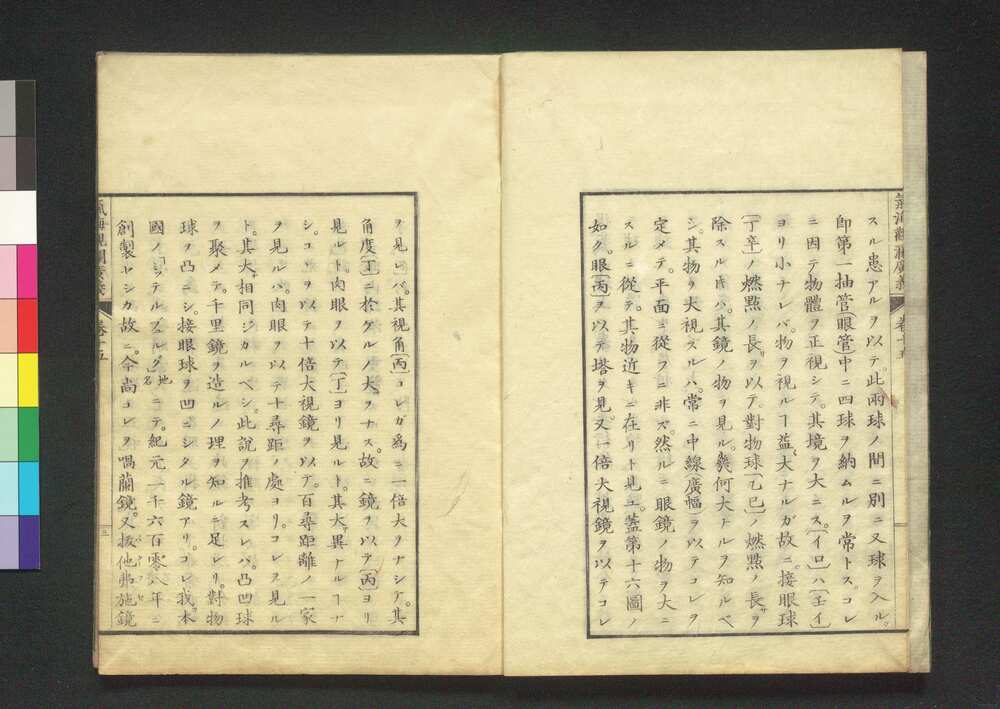 氣海觀瀾廣義 卷十五
スル患アルヲ以テ。此兩球ノ間ニ別ニ又球ヲ入ル。
卽第一抽管〔眼管〕中ニ四球ヲ納ムルヲ常トス。コレ
ニ因テ物體ヲ正視シテ。其境ヲ大ニス。〔イロ〕ハ〔壬イ〕
ヨリ小ナレバ。物ヲ視ルヿ益大ナルガ故ニ。接眼球
〔丁辛〕ノ燃點ノ長サヲ以テ。對物球〔乙巳〕ノ燃點ノ長サヲ
除スルトキハ。其鏡ノ物ヲ見ル。幾何大トルヲ知ルベ
シ。其物ヲ大視スルハ。常ニ中線〔廣幅〕ヲ以テコレヲ
定メテ。平面ニ從フニ非ズ。然ルニ眼鏡ノ物ヲ大ニ
スルニ從テ。其物近キニ在リト見ユ。蓋第十六圖ノ
如ク。眼〔丙〕ヲ以テ塔ヲ見。又一倍大視鏡ヲ以テコレ
ヲ見レバ。其視角〔丙〕コレガ爲ニ一倍大ヲナシテ。其
角度〔丁〕ニ於ケルノ大ヲナス。故ニ鏡ヲ以テ〔丙〕ヨリ
見ルト。肉眼ヲ以テ〔丁〕ヨリ見ルト。其大異ナルヿナ
シ。コヽヲ以テ十倍大視鏡ヲ以テ。百尋距離ノ一家
ヲ見ルバ。肉眼ヲ以テ十尋距ノ處ヨリ。コレヲ見ル
ト。其大相同ジカルベシ。此說ヲ推考スレバ。凸凹球
ヲ聚メテ。千里鏡ヲ造ルノ理ヲ知ルニ足レリ。對物
球ヲ凸ニシ。接眼球ヲ凹ニシタル鏡アリ。コレ我本
國ノ「ミデルブルグ」地名ニテ。紀元一千六百零八年ニ
創製セシカ故ニ。今尚コレヲ」喎蘭鏡。又扳他弗施鏡
氣海觀瀾廣義 卷十五 三